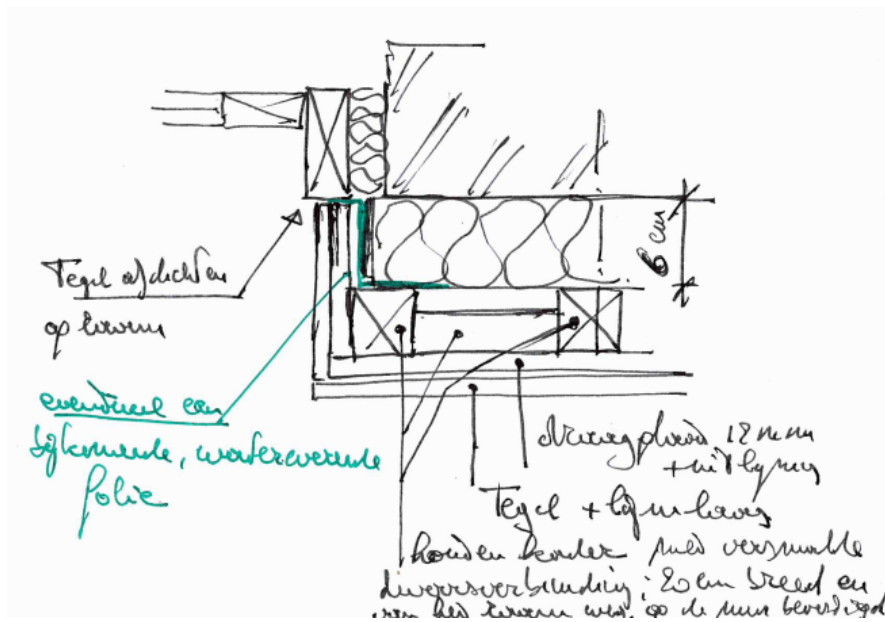 Tegel afdichten
op kozijn
6 cm
eventueel een
bijkomende, waterwerende
folie
draagplaat 12 mm
+ uitlijnen
Tegel + lijmlaag
houten kader met versmalde
dwarsverbinding: 20 cm breed en
van het kozijn weg, op de muur bevestigd